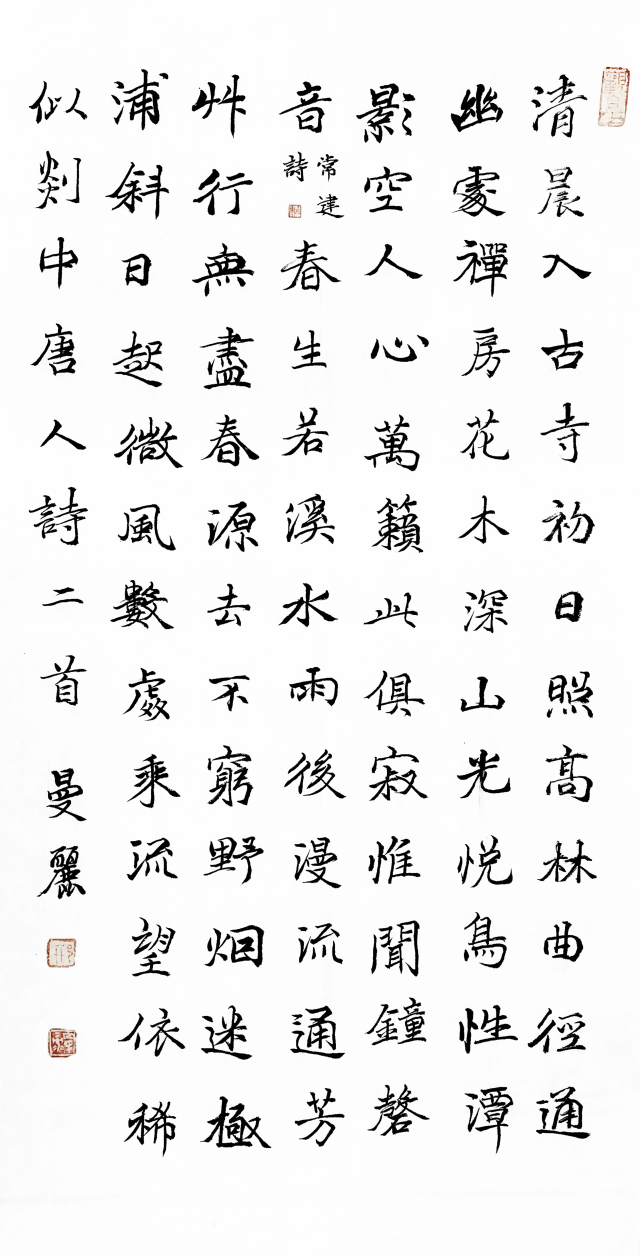 清晨入古寺初日照髙林曲徑通
幽處禪房花木深山光悦鳥性潭
影空人心萬籟此俱寂惟聞鐘磬
音
常建
詩
春生若溪水雨後漫流通芳
艸行無盡春源去不窮野烟迷極
浦斜日起微風數處乘流望依稀
似剡中唐人詩二首 曼麗